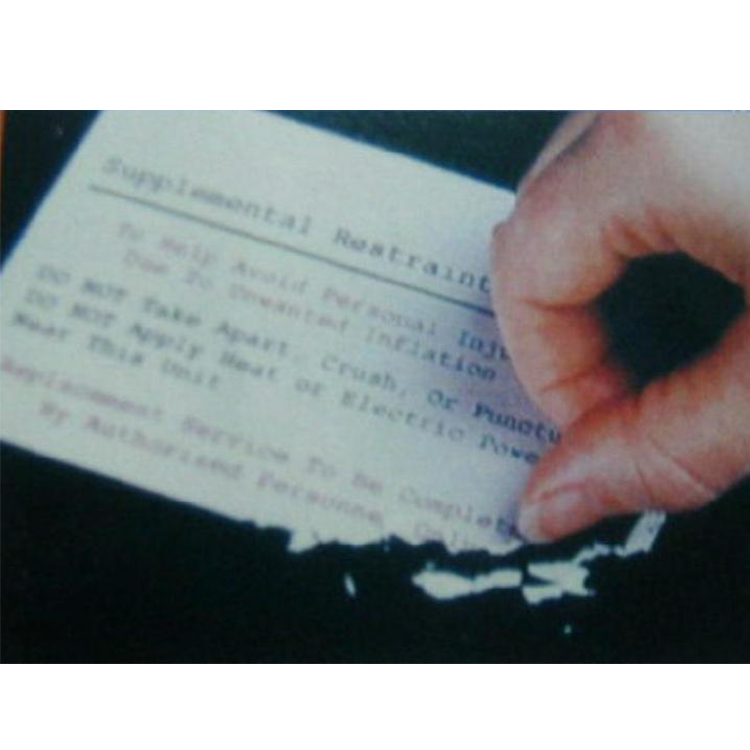 Supplemental Restraint
To Help Avoid Personal Inju
Due To Unwanted Inflation
DO NOT Take Apart, Crush, Or Punctu
DO NOT Apply Heat or Electric Powe
Near This Unit
Replacement Service To Be Complete
By Authorized Personne Only